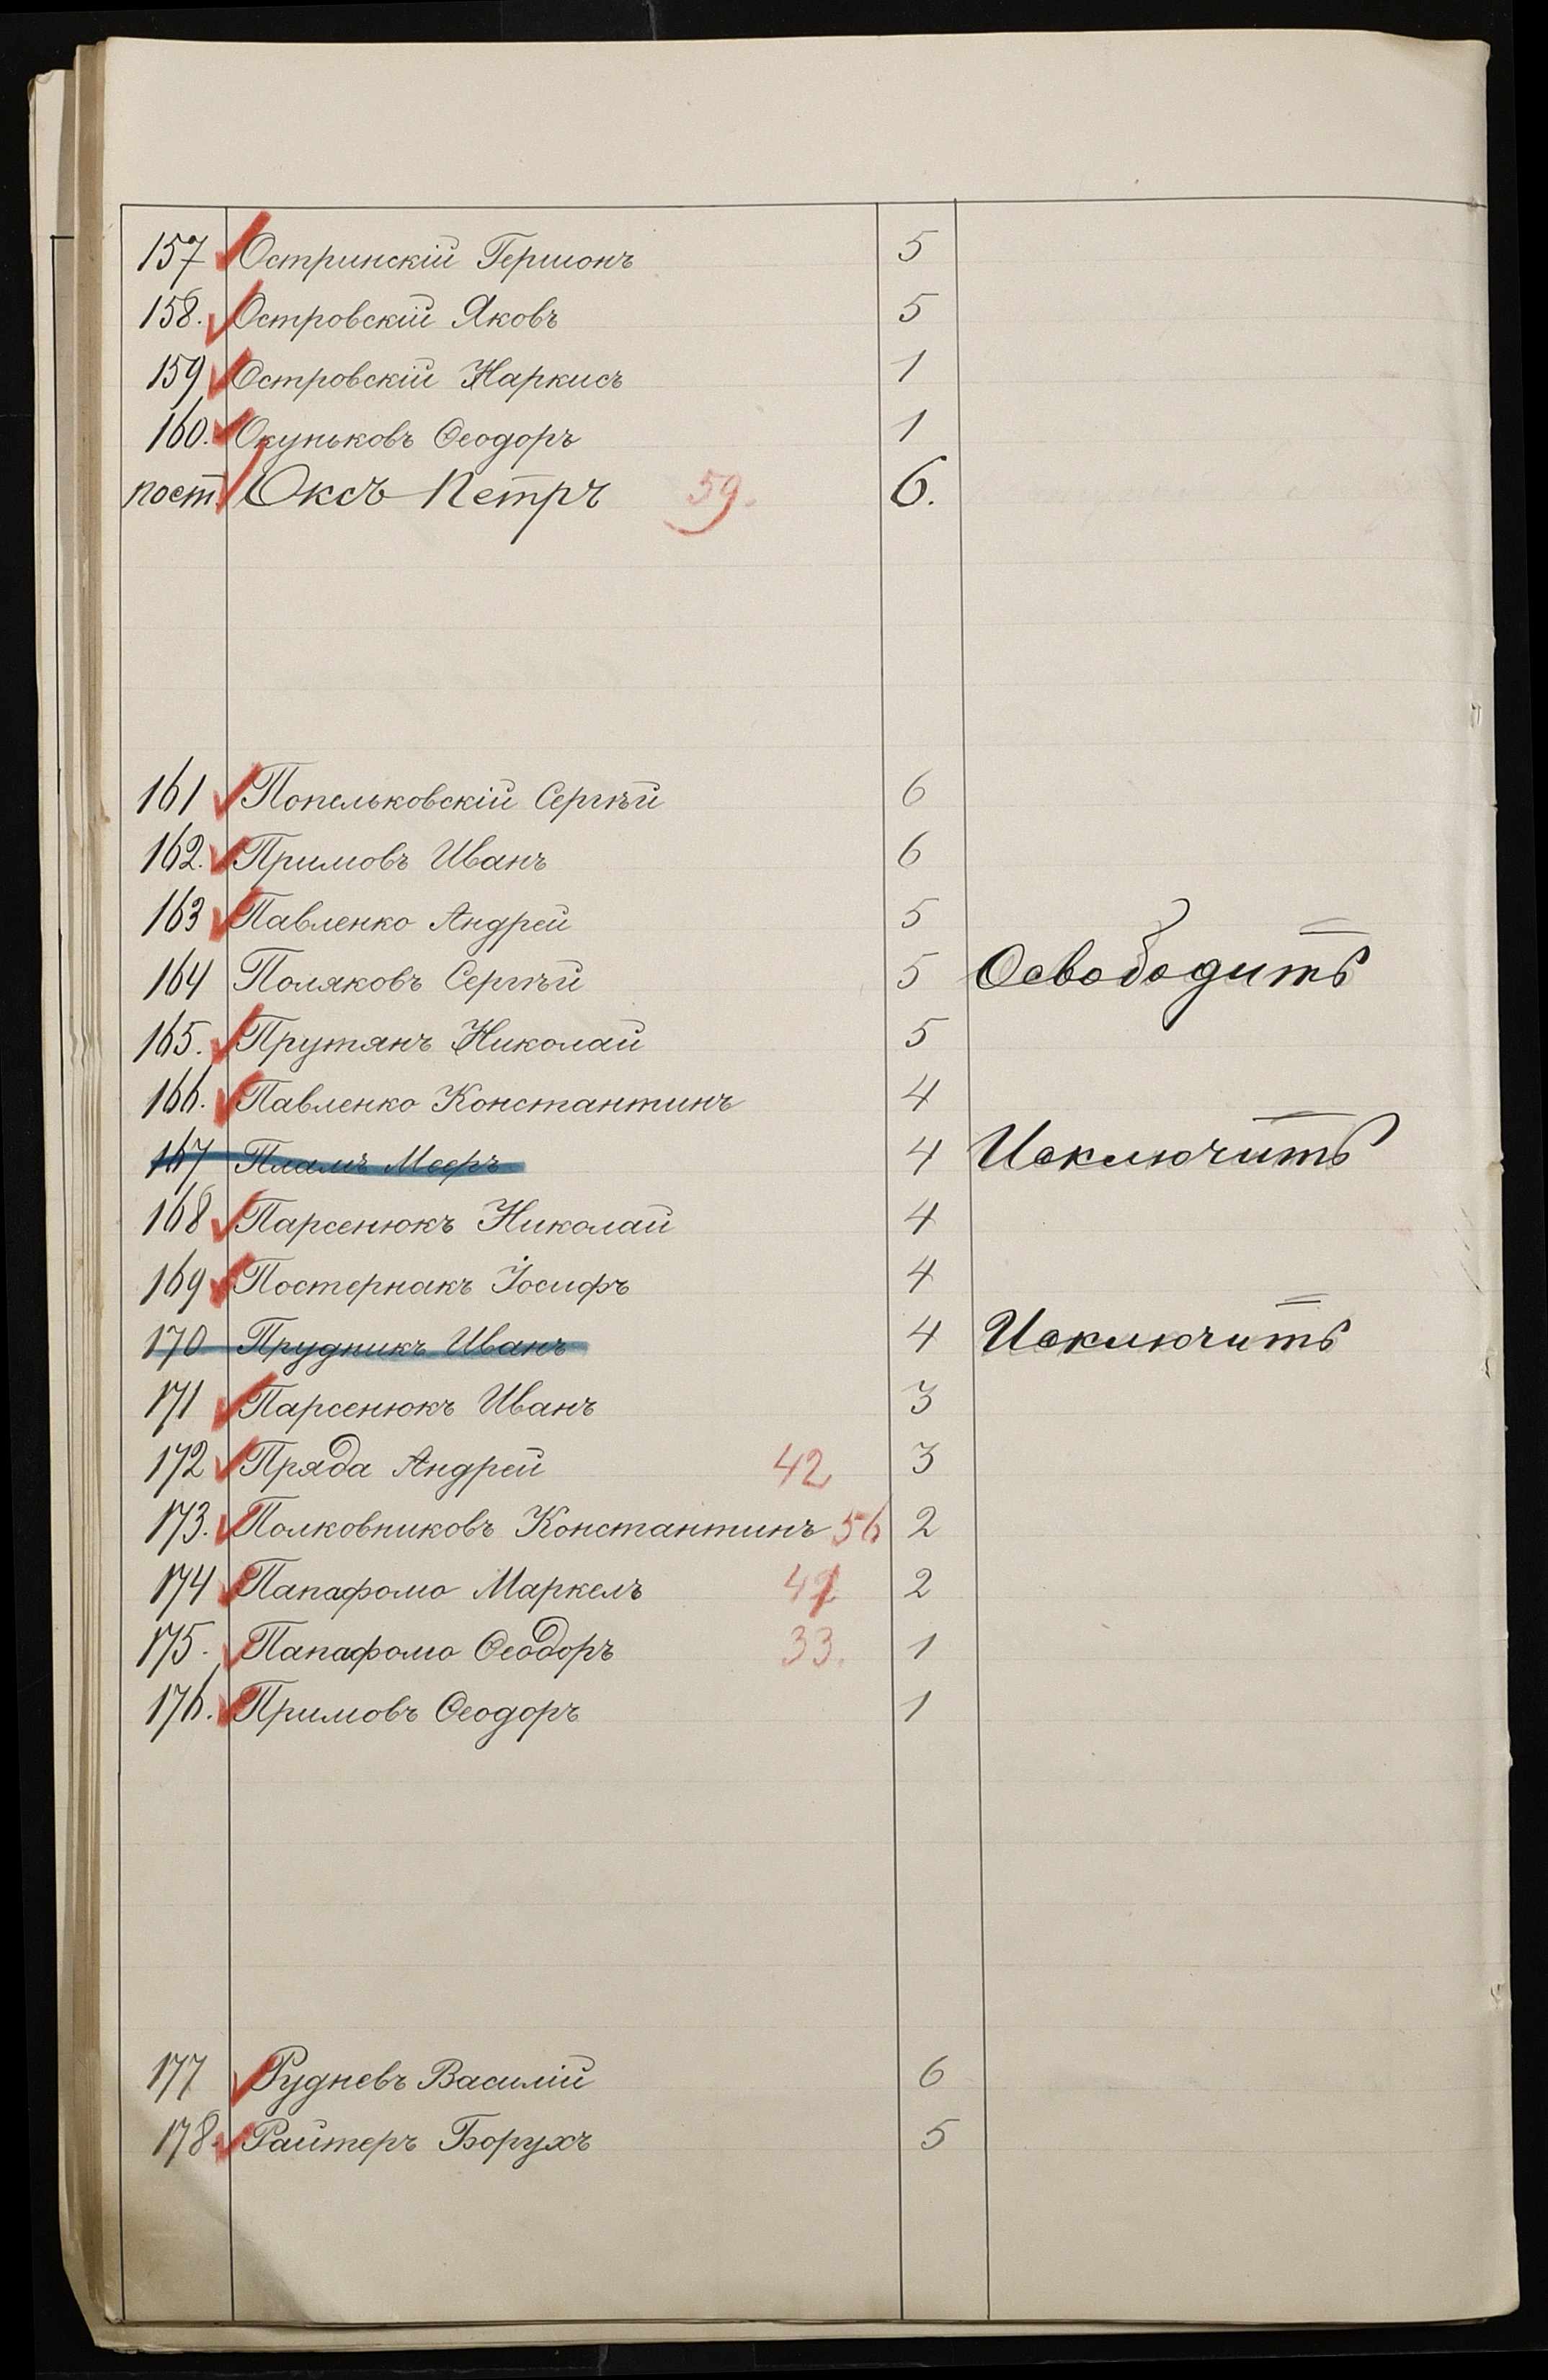 157 Остринскій Гершонъ 5
158. Островскій Яковъ 5
159 Островскій Наркисъ 1
160. Окуньковъ Ѳеодоръ 1
пост. Оксъ Петръ 59. 6.
161 Попельковскій Сергѣй 6
162. Примовъ Иванъ 6
163 Павленко Андрей 5
164 Поляковъ Сергѣй 5 Освободить
165. Прутянъ Николай 5
166. Павленко Константинъ 4
167 Пламъ Мееръ 4 Исключить
168 Парсенюкъ Николай 4
169 Постернакъ Іосифъ 4
170 Прудникъ Иванъ 4 Исключить
171 Парсенюкъ Иванъ 3
172 Пряда Андрей 42 3
173. Полковниковъ Константинъ 56 2
174 Папафомо Маркелъ 2
175. Папафомо Ѳеодоръ 33. 1
176. Примовъ Ѳеодоръ 1
177 Рудневъ Василій 6
178. Райтеръ Борухъ 5